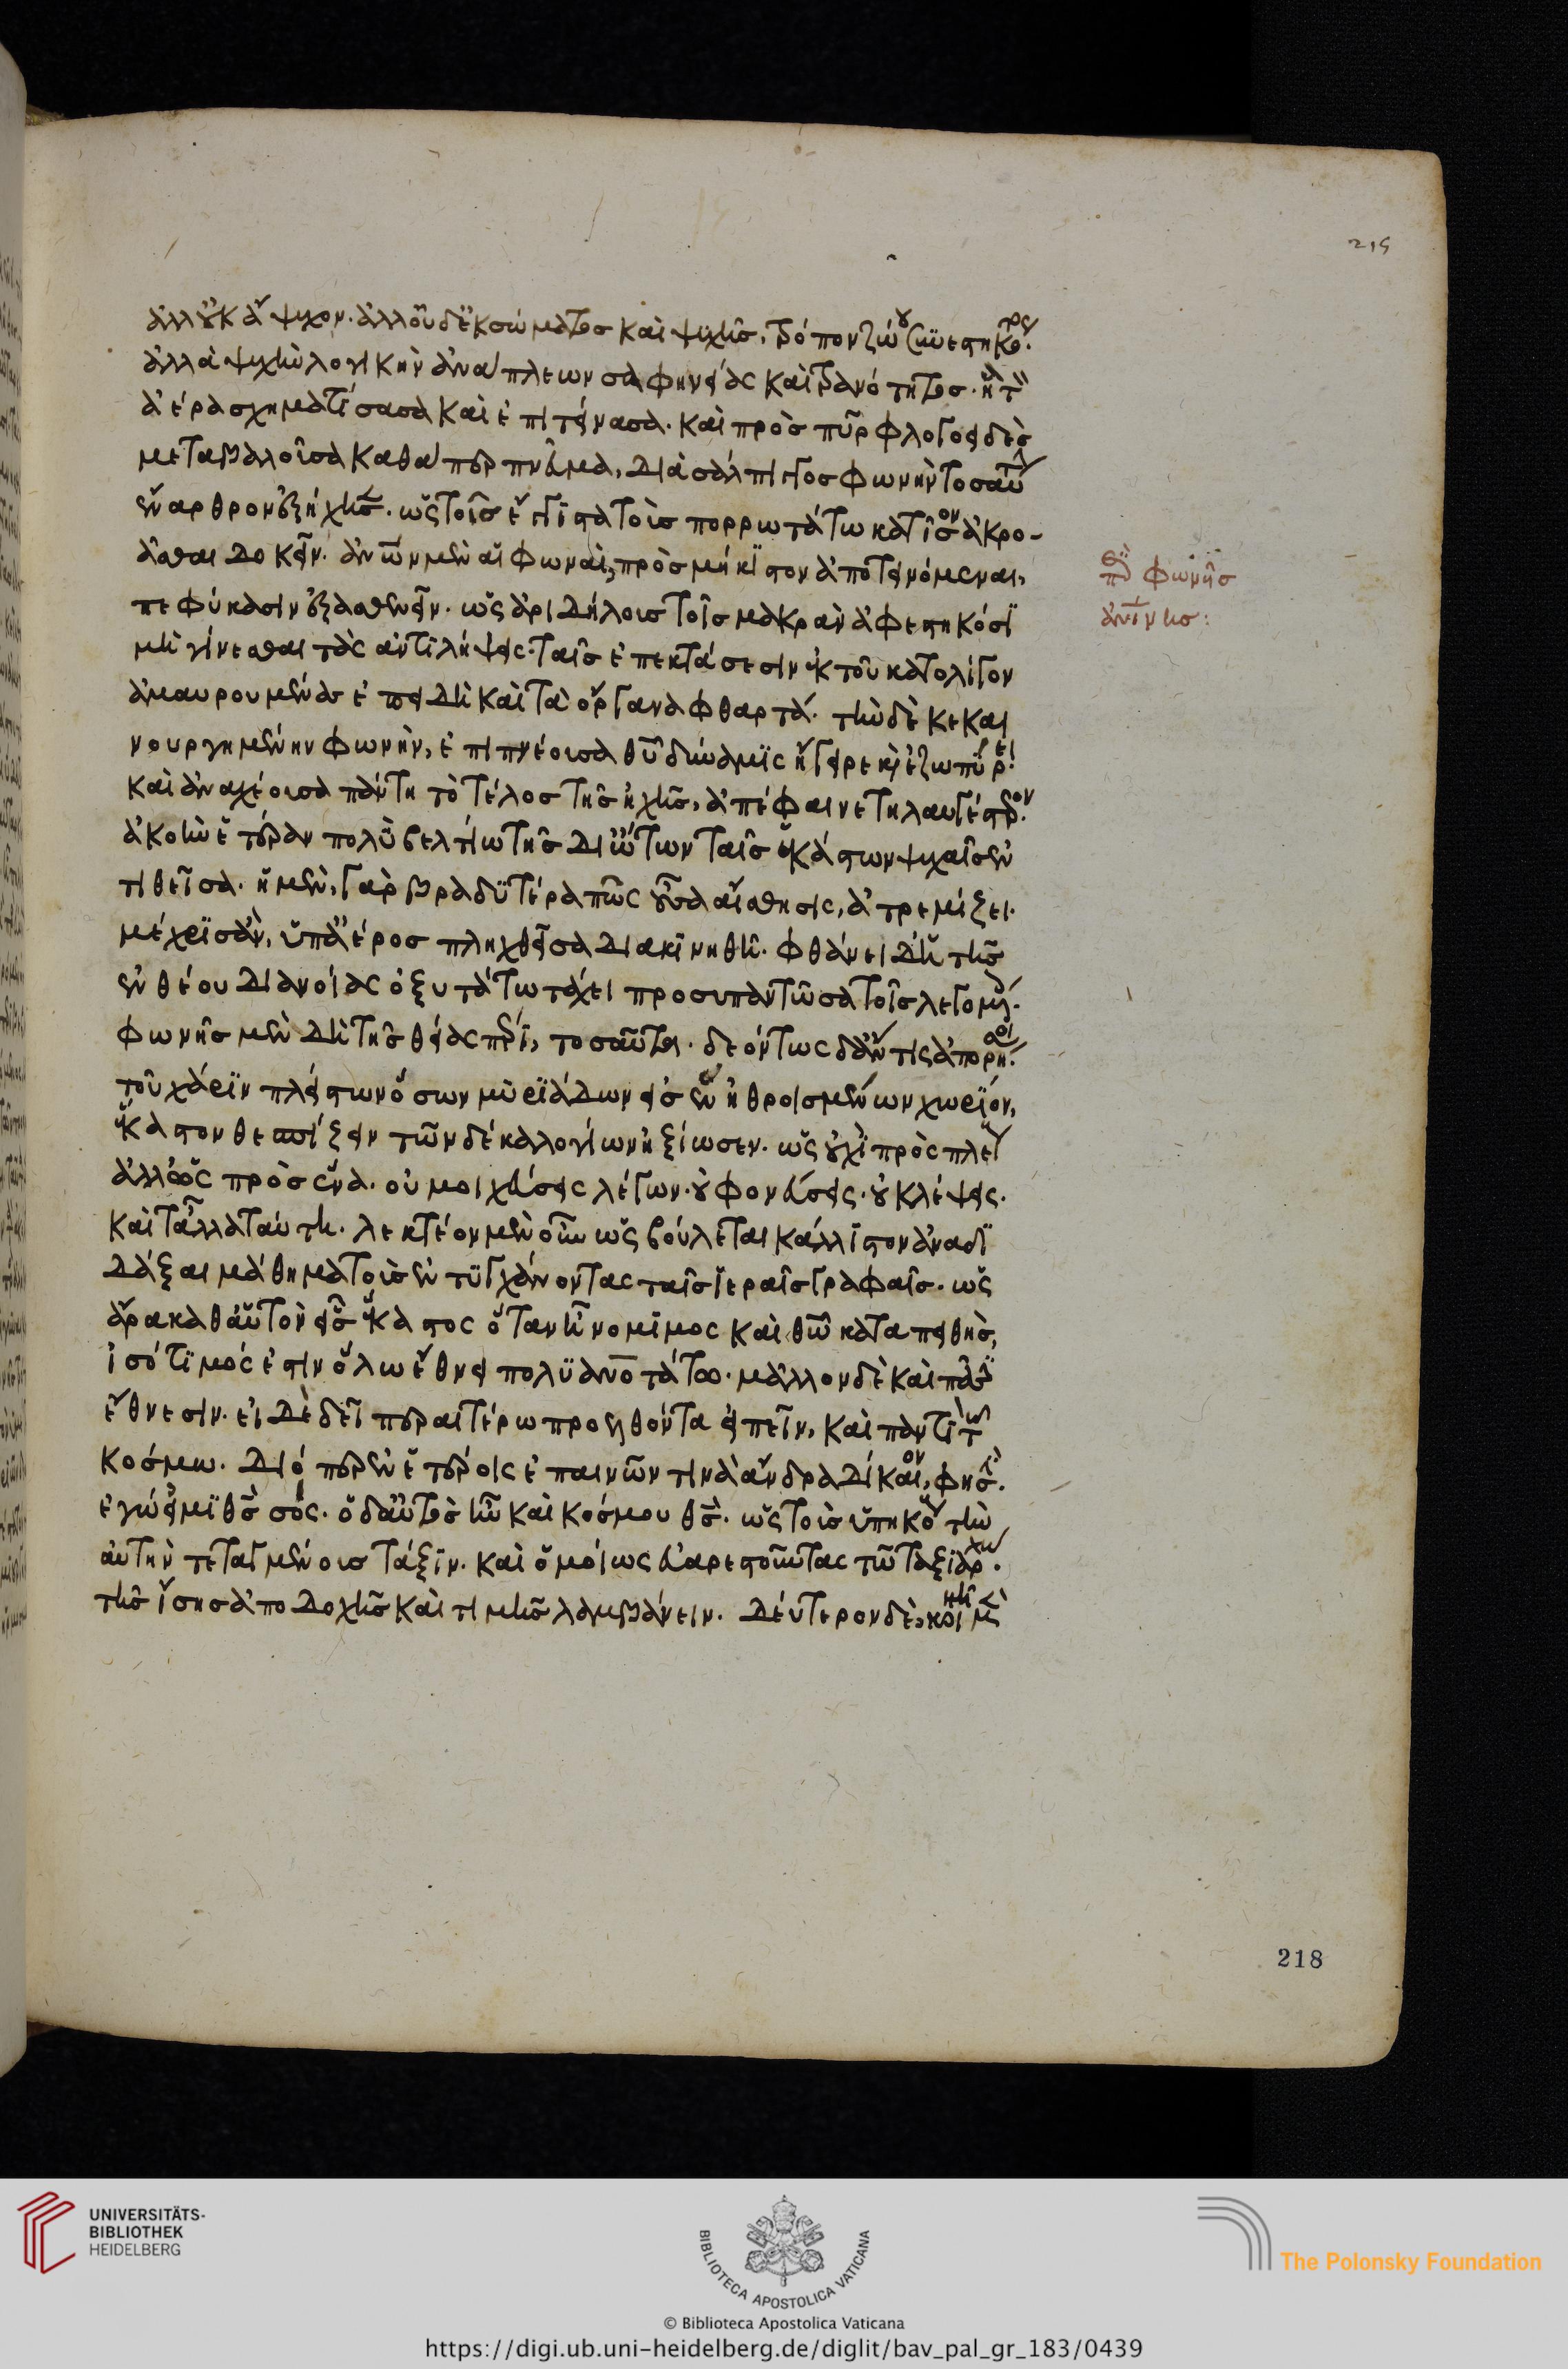 ἀλλ' οὐκ ἄψυχον. ἀλλ' οὐδ' ἐκ σώματος καὶ ψυχῆς, τρόπον ζώου συνεστηκός.
ἀλλὰ ψυχὴν λογικὴν ἀνάπλεων σαφηνείας καὶ τρανότητος. ἣ τὸν
ἀέρα σχηματίσασα καὶ ἐπιτείνασα. καὶ πρὸς πῦρ φλογοειδὲς
μεταβαλοῦσα καθάπερ πνεῦμα, διὰ σάλπιγγος φωνὴν τοσαύτην
ἔναρθρον ἐξήχησεν. ὡς τοῖς ἔγγιστα τοὺς πορρωτάτω κατ' ἴσον ἀκρο-
ᾶσθαι δοκεῖν. ἀνων μὲν αἱ φωναὶ, πρὸς μήκιστον ἀποτεινόμεναι,
πεφύκασιν ἐξασθενεῖν. ὡς ἀριδήλους τοῖς μακρὰν ἀφεστηκόσι
μὴ γίνεσθαι τὰς ἀντιλήψεις. ταῖς ἐπεκτάσεσιν ἐκ τοῦ κατ' ολίγον
ἀμαυρουμένας ἐπειδὴ καὶ τὰ ὄργανα φθαρτά. τὴν δὲ κεκαι
νουργημένην φωνὴν, ἐπιπνέουσα θεοῦ δύναμις ἤγειρε καὶ ἐζωπύρει.
καὶ ἀναχέουσα πάντη τὸ τέλος τῆς ἠχῆς, ἀπέφαινε τηλαυγέστερον.
ἀκοὴν ἑτέραν πολὺ βελτίω τῆς δι' ὤτων ταῖς ἑκάστων ψυχαῖς ἐν
τιθεῖσα. ἡ μὲν, γὰρ βραδυτέρα πως οὖσα αἴσθησις, ἀτρεμίζει.
μέχρις ἂν, ὑπ' ἀέρος πληχθεῖσα διακινηθῆ. φθάνει δ' ἡ τῆς
ἐνθέου διανοίας ὀξυτάτω τάχει προσυπαντῶσα τοῖς λεγομένοις.
φωνῆς μὲν δὴ τῆς θείας πέρι, τοσαῦτα. δεόντως δ' ἄν τις ἀπορήσαι
τοῦ χάριν πλείστων ὅσων μυριάδων εἰς ἓν ἠθροισμένων χωρίον,
ἕκαστον θεσπίζειν τῶν δέκα λογίων ἠξίωσεν. ὡς οὐχὶ πρὸς πλείους
ἀλλ' ὡς πρὸς ἕνα. οὐ μοιχεύσεις λέγων. οὐ φονεύσεις. οὐ κλέψεις.
καὶ τἄλλα ταύτη. λεκτέον μὲν οὖν ὡς βούλεται κάλλιστον ἀναδι
δάξαι μάθημα τοὺς ἐντυγχάνοντας ταῖς ἱεραῖς γραφαῖς. ὡς
ἄρα καθ' αὑτὸν εἷς ἕκαστος ὅταν ἦ νομιμος καὶ θεῶ καταπειθὴς,
ἰσότιμός ἐστιν ὅλω ἔθνει πολυανθρωποτάτω. μᾶλλον δὲ καὶ πᾶσιν
ἔθνεσιν. εἰ δὲ δεῖ περαιτέρω προελθόντα εἰπεῖν, καὶ παντὶ τῶ
κόσμω. διόπερ ἐν ἑτέροις ἐπαινῶν τινὰ ἄνδρα δίκαιον, φησίν.
ἐγώ εἰμι θεὸς σός. ὁ δ' αὐτὸς ἦν καὶ κόσμου θεός. ὡς τοὺς ὑπηκόους τὴν
αὐτὴν τεταγμένους τάξιν. καὶ ὁμοίως εὐαρεστοῦντας τῶ ταξιάρχω.
τῆς ἴσης ἀποδοχῆς καὶ τιμῆς λαμβάνειν. δεύτερον δὲ, κοινῆ μὲν
περὶ φωνῆς
218
UNIVERSITÄTS-
BIBLIOTHEK
HEIDELBERG
BIBLIOTECA APOSTOLICA VATICANA
The Polonsky Foundation
© Biblioteca Apostolica Vaticana
https://digi.ub.uni-heidelberg.de/diglit/bav_pal_gr_183/0439